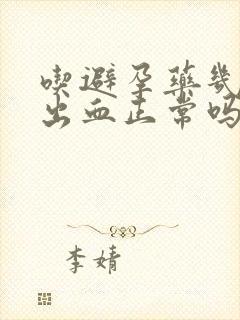 喫避孕藥幾
出血正常吗
李婧